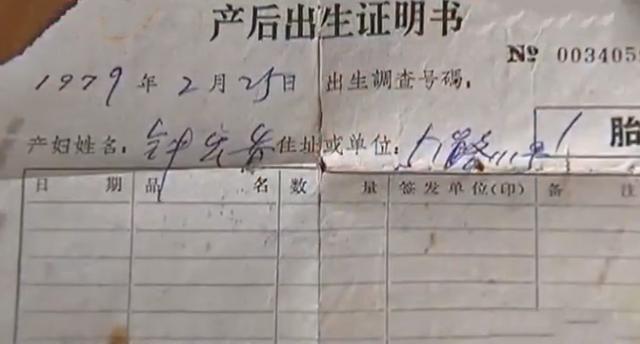 产后出生证明书
№ 003405
1979年2月25日 出生调查号码:
产妇姓名: 住址或单位:
胎
日期 品名 数量 签发单位(印) 备注